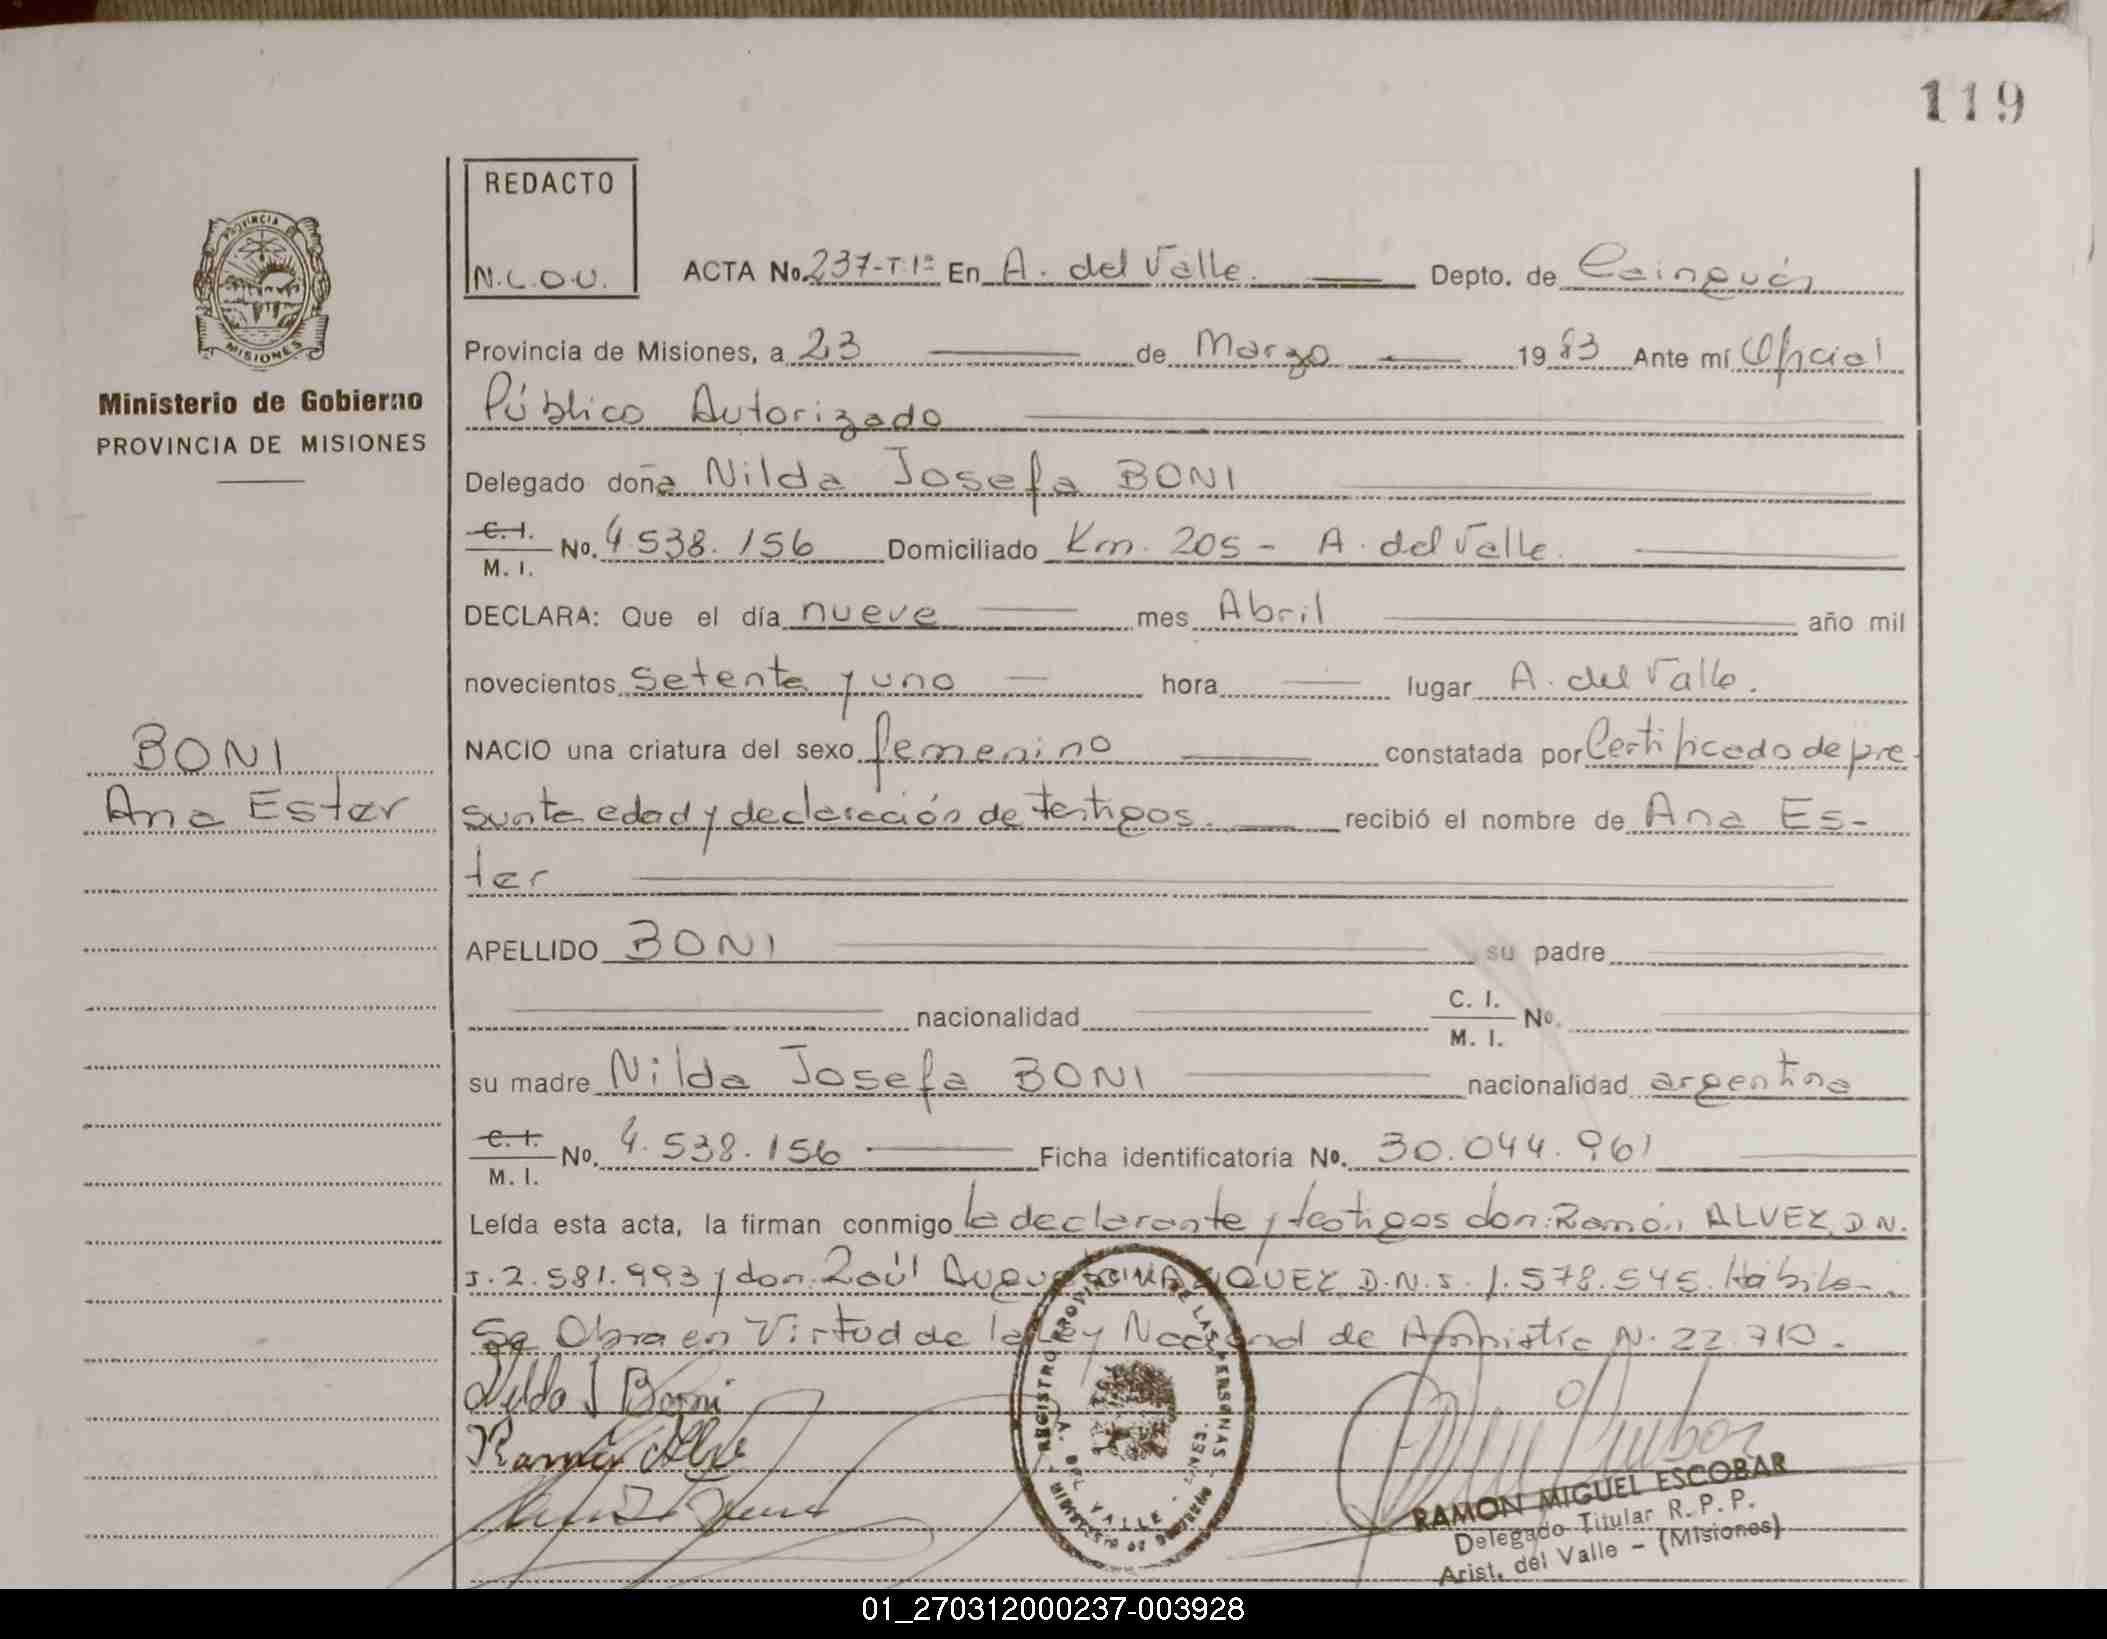 119
REDACTO
N.L.O.U.
PROVINCIA DE
MISIONES
Ministerio de Gobierno
PROVINCIA DE MISIONES
ACTA No. 237-T.1º En A. del Valle. Depto. de Cainguás
Provincia de Misiones, a 23 de Marzo 1983 Ante mí Oficial
Público Autorizado
Delegado doña Nilda Josefa BONI
C. I.
M. I. No. 4.538.156 Domiciliado Km. 205 - A. del Valle.
DECLARA: Que el día nueve mes Abril año mil
novecientos setenta y uno hora lugar A. del Valle.
BONI
Ana Ester
NACIO una criatura del sexo femenino constatada por Certificado de pre-
sunta edad y declaración de testigos. recibió el nombre de Ana Es-
ter
APELLIDO BONI su padre
nacionalidad C. I.
M. I. No.
su madre Nilda Josefa BONI nacionalidad argentina
C. I.
M. I. No. 4.538.156 Ficha identificatoria No. 30.044.961
Leída esta acta, la firman conmigo la declarante y testigos don: Ramón ALVEZ, D.N.
I. 2.581.993 y don: Raúl D.N.I. 1.578.545. Hábiles.
Se Obra en Virtud de la Ley Nacional de Amnistía N. 22.710.
Nilda J Boni
Ramón
REGISTRO PROVINCIAL DE LAS PERSONAS
A. DEL VALLE
RAMON MIGUEL ESCOBAR
Delegado Titular R. P. P.
Arist. del Valle - (Misiones)
01_270312000237-003928